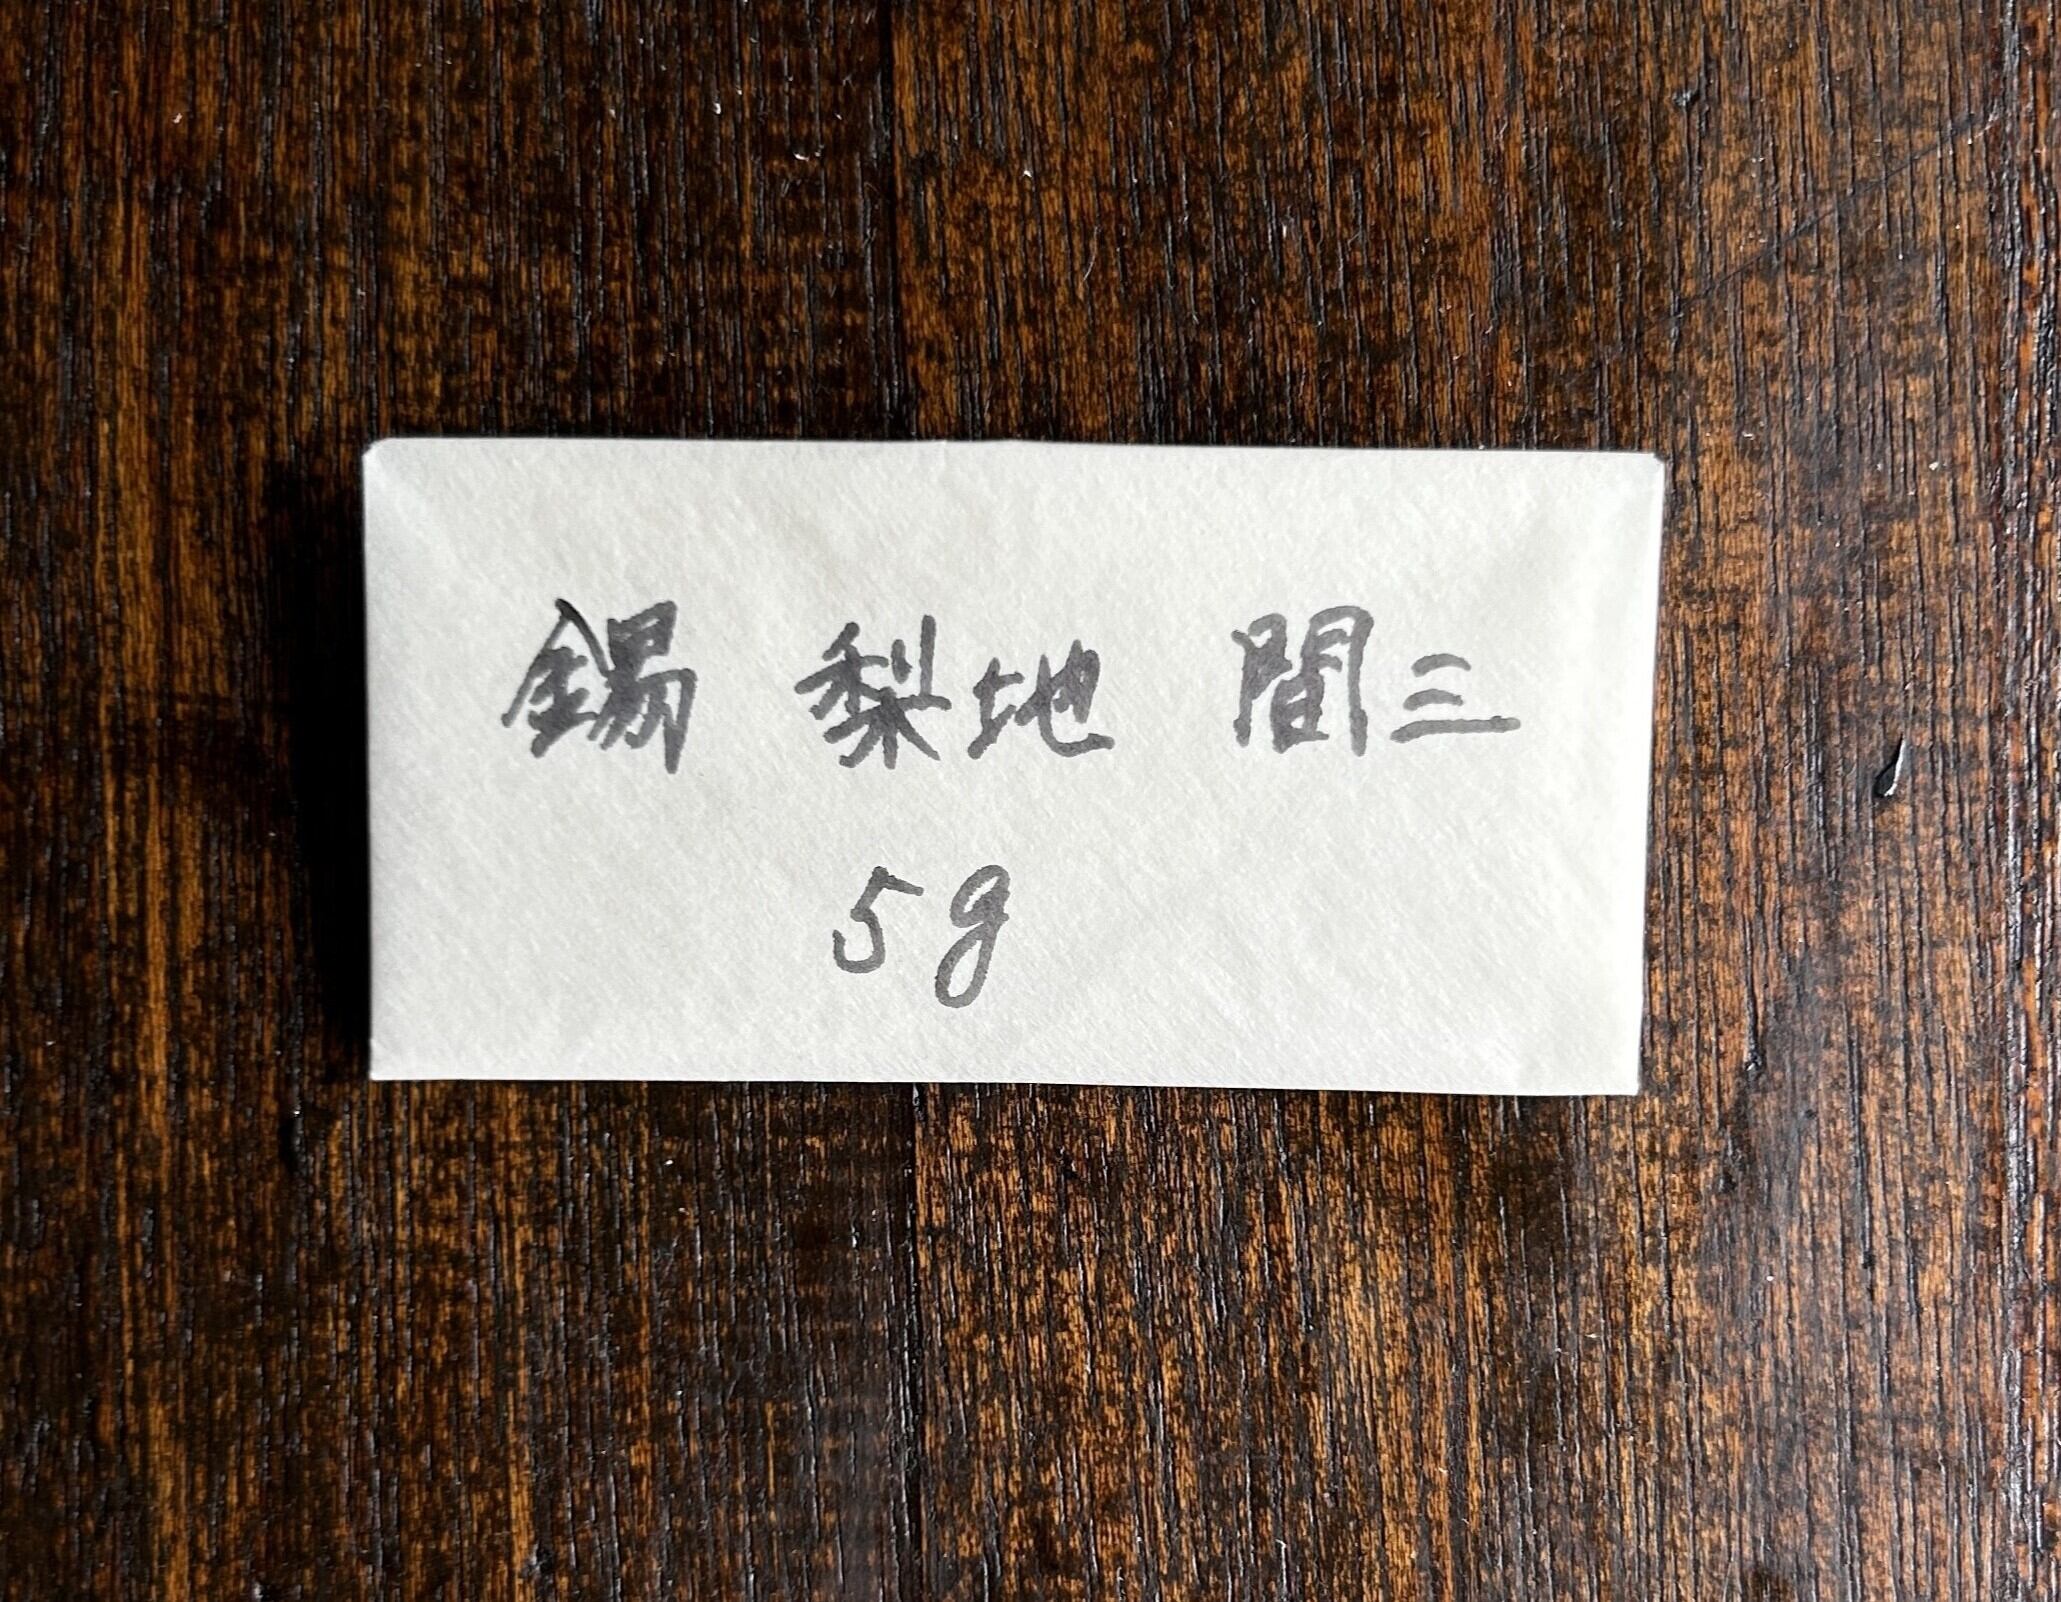 錫 梨地 間三
5g